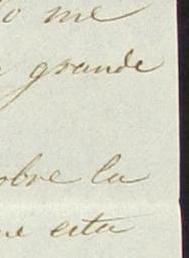 lo me
grande
obre la
ue esta